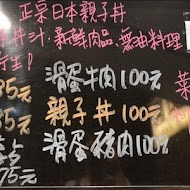 正宗日本親子丼
丼汁：新鮮肉品、醬油料理
行生！
35元 滑蛋牛肉100元
35元 親子丼100元
滑蛋豬肉100元
75元
菜